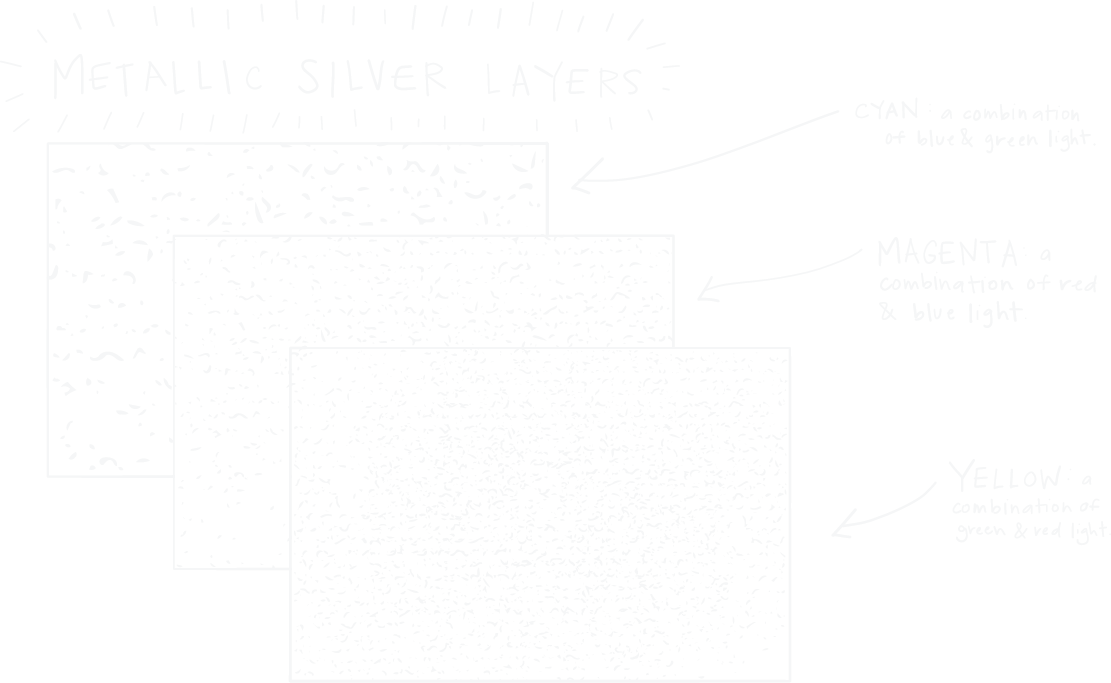 METALLIC SILVER LAYERS
CYAN: a combination
of blue & green light.
MAGENTA a
combination of red
& blue light
YELLOW: a
combination of
green & red light.